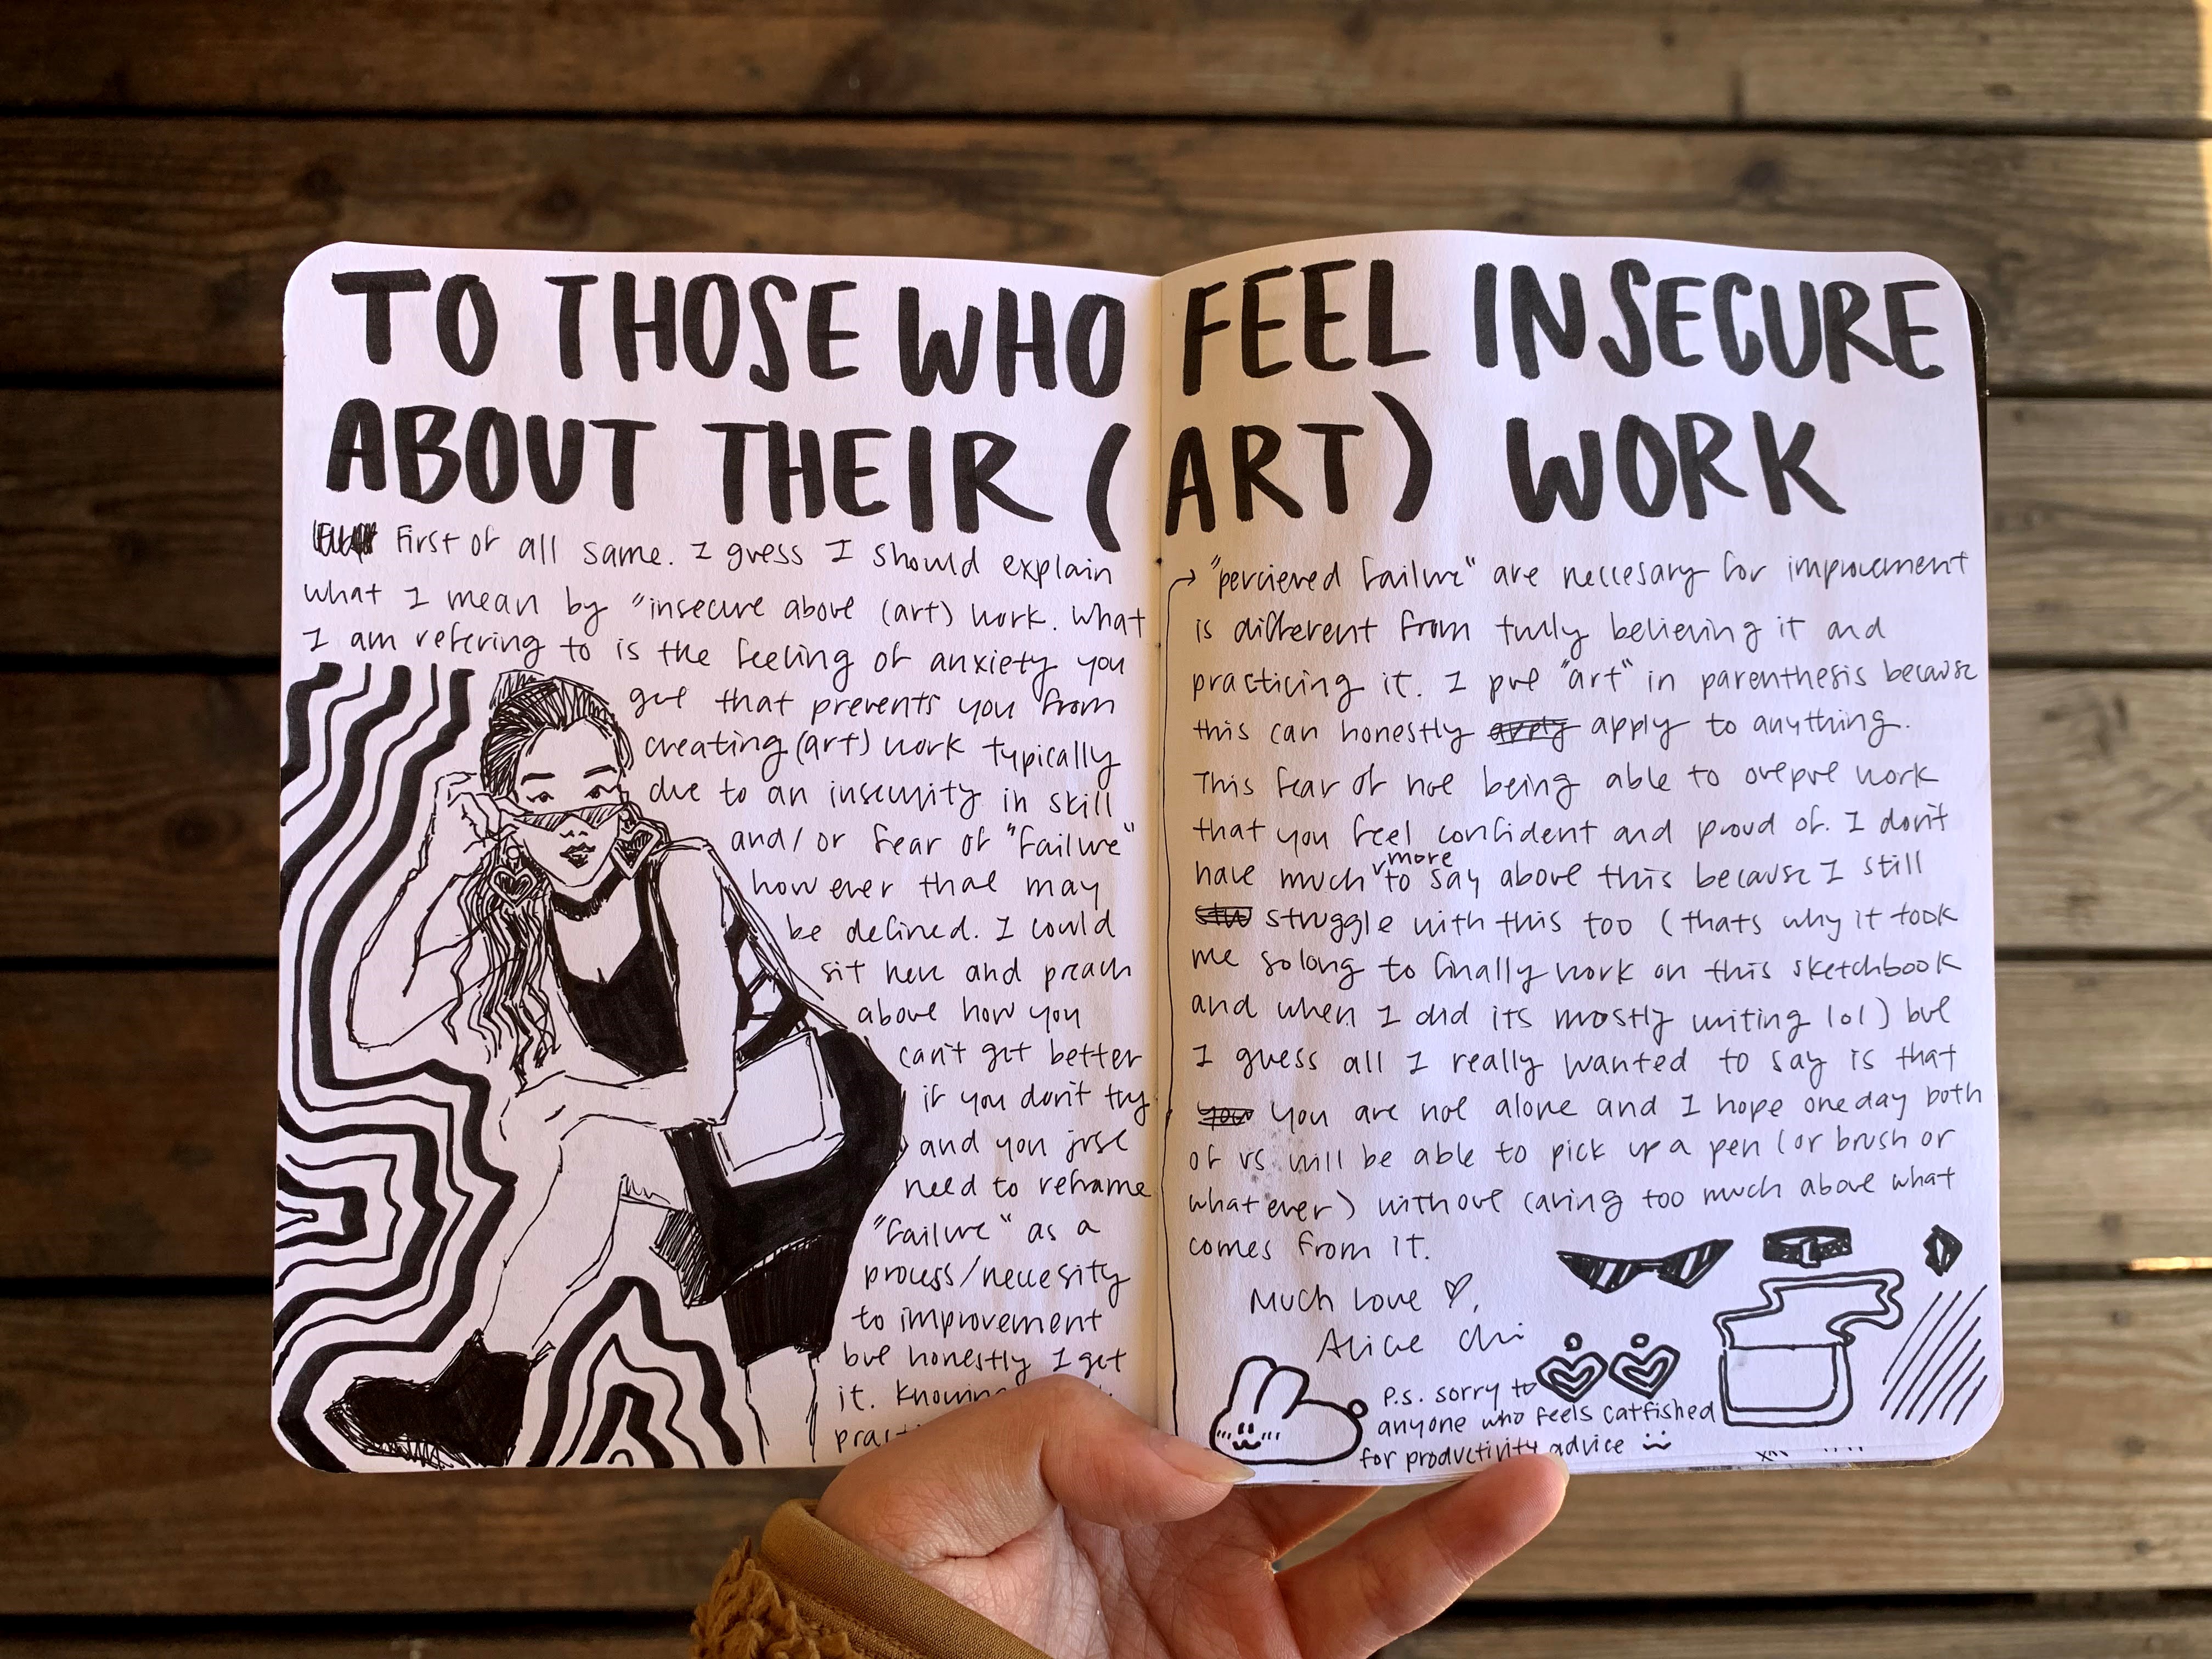 TO THOSE WHO FEEL INSECURE
ABOUT THEIR (ART) WORK
First of all same. I guess I should explain
what I mean by "insecure about (art) work. What
I am refering to is the feeling of anxiety you
get that prevents you from
creating (art) work typically
due to an insecurity in skill
and/or fear of "failure"
however that may
be defined. I could
sit here and preach
about how you
can't get better
if you don't try
and you just
need to reframe
"failure" as a
process/neccesity
to improvement
but honestly I get
it. Knowing
"percieved failure" are neccesary for improvement
is different from truly believing it and
practicing it. I put "art" in parenthesis because
this can honestly apply to anything.
This fear of not being able to output work
that you feel confident and proud of. I don't
have much more to say about this because I still
struggle with this too (thats why it took
me so long to finally work on this sketchbook
and when I did its mostly writing lol) but
I guess all I really wanted to say is that
you are not alone and I hope one day both
of us will be able to pick up a pen (or brush or
whatever) without caring too much about what
comes from it.
Much Love ♡,
Alice Chi
P.S. sorry to
anyone who feels catfished
for productivity advice